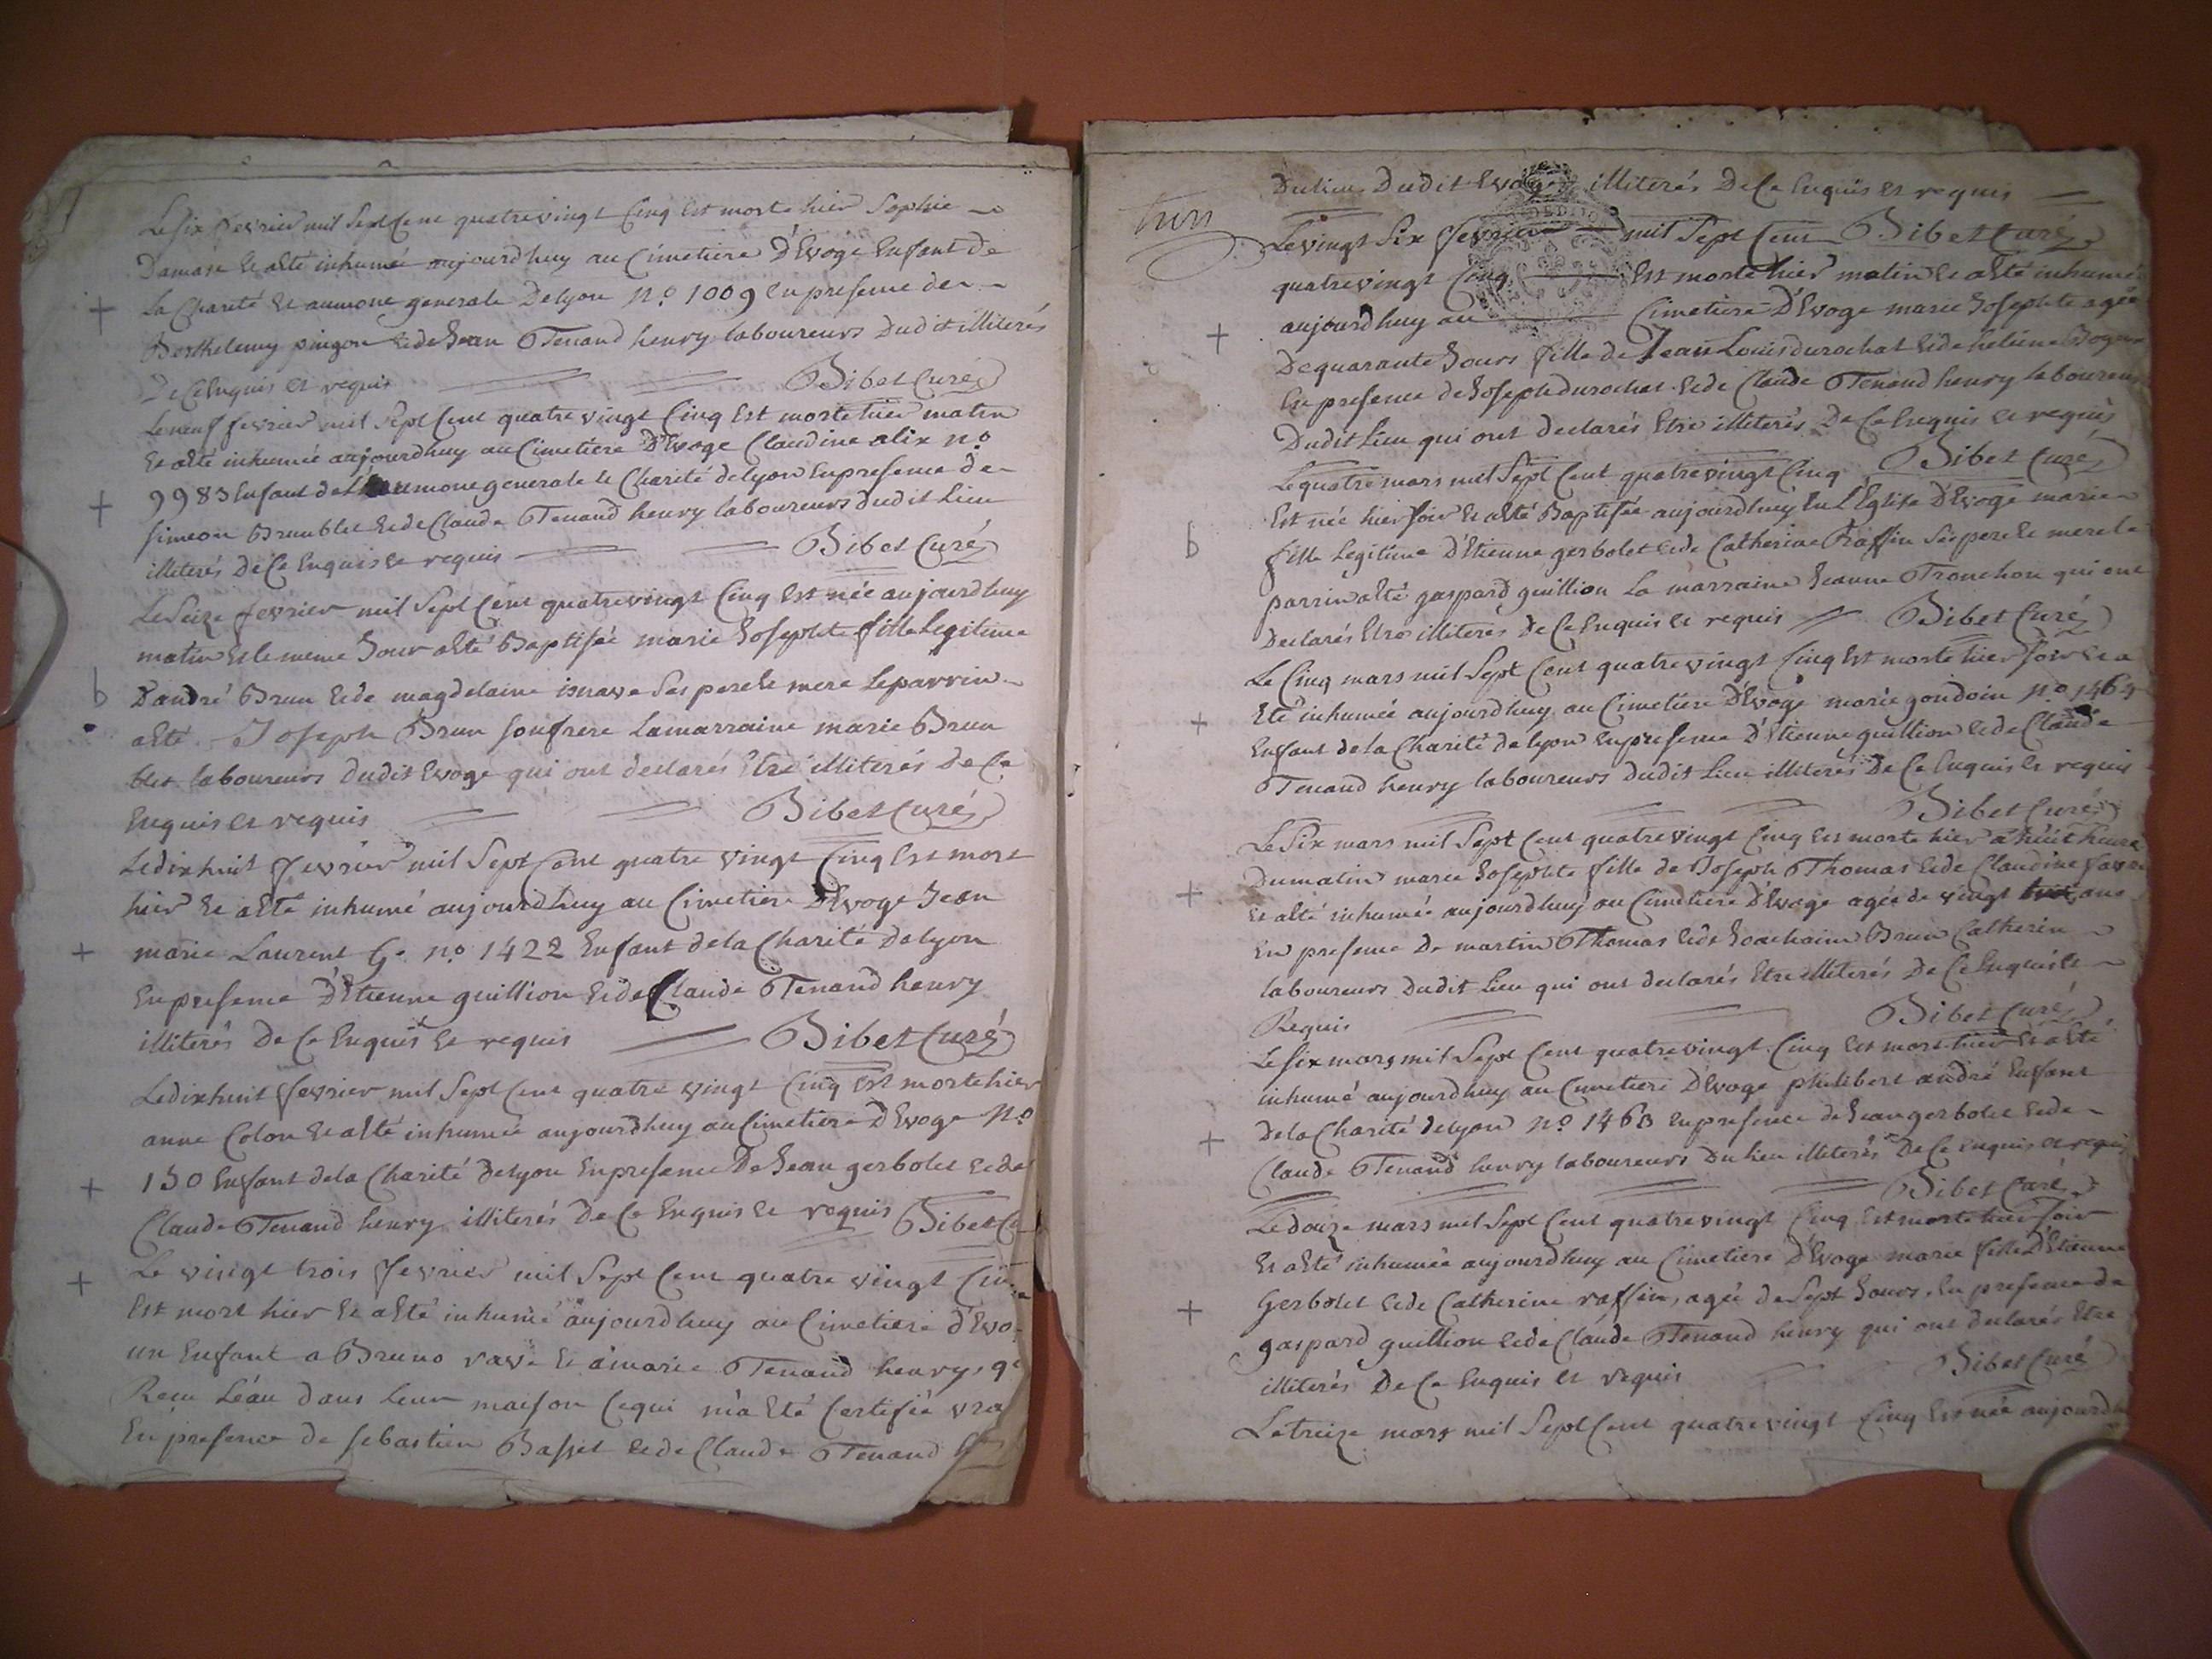 Le six fevrier mil Sept Cent quatrevingt Cinq Est morte hier Sophie
Damase Et a Eté inhumée aujourd'huy au Cimetiere D'Evoge Enfant de
La Charité Et aumone generale De lyon N.o 1009 En presence de
Barthelemy pingon Et de Jean Tenand henry laboureurs Dudit illiterés
De Ce Enquis Et requis Bibet Curé
Le neuf fevrier mil Sept Cent quatre vingt Cinq Est morte hier matin
Et a Eté inhumée aujourd'huy au Cimetiere D'Evoge Claudine alix N.o
9983 Enfant de L'aumone generale Et Charité de lyon En presence de
Simeon Brunblet Et de Claude Tenand henry laboureurs dudit Lieu
illiterés De Ce Enquis Et requis Bibet Curé
Le Seize fevrier mil Sept Cent quatrevingt Cinq Est née aujourd'huy
matin Et le meme Jour a Eté Baptisée marie Josephte fille Legitime
D'andré Brun Et de magdelaine ses pere Et mere Le parrin
a Eté Joseph Brun son frere La marraine marie Brun
blet laboureurs dudit Evoge qui ont declarés Etre illiterés De Ce
Enquis Et requis Bibet Curé
Le dix huit fevrier mil Sept Cent quatre vingt Cinq Est mort
hier Et a Eté inhumé aujourd'huy au Cimetiere D'Evoge Jean
marie Laurent G. N.o 1422 Enfant de la Charité de lyon
En presence D'Etienne guillion Et de Claude Tenand henry
illiterés De Ce Enquis Et requis Bibet Curé
Le dix huit fevrier mil Sept Cent quatre vingt Cinq Est morte hier
anne Colon Et a Eté inhumée aujourd'huy au Cimetiere D'Evoge N.o
130 Enfant de la Charité De lyon En presence De Jean gerbolet Et de
Claude Tenand henry illiterés De Ce Enquis Et requis Bibet Cu
Le vingt trois fevrier mil Sept Cent quatre vingt Cin
Est mort hier Et a Eté inhumé aujourd'huy au Cimetiere d'Evo
un Enfant a Bruno rave Et a marie Tenand henry, q
Recu L'eau dans leur maison Ce qui m'a Eté Certifié vra
En presence de sebastien Basset Et de Claude Tenand h
Du lieu Dudit Evoge illiterés De Ce Enquis Et requis
Le vingt Six fevrier mil Sept Cent Bibet Curé
quatrevingt Cinq Est morte hier matin Et a Eté inhumée
aujourd'huy au Cimetiere D'Evoge marie Josephte agée
De quarante Jours fille de Jean Louis durochat Et de heleine
En presence de Joseph durochat Et de Claude Tenand henry laboureurs
Dudit Lieu qui ont declarés Etre illiterés De Ce Enquis Et requis
Le quatre mars mil Sept Cent quatrevingt Cinq Bibet Curé
Est née hier soir Et a Eté Baptisée aujourd'huy En L'Eglise D'Evoge marie
fille Legitime D'Etienne gerbolet Et de Catherine Raffin Ses pere Et mere le
parrin a Eté gaspard guillion La marraine Jeanne Tronchon qui ont
Declarés Etre illiterés De Ce Enquis Et requis Bibet Curé
Le Cinq mars mil Sept Cent quatre vingt Cinq Est morte hier soir Et a
Eté inhumée aujourd'huy au Cimetiere D'Evoge marie gondoin N.o 1464
Enfant de la Charité de lyon En presence D'Etienne guillion Et de Claude
Tenand henry laboureurs dudit Lieu illiterés De Ce Enquis Et requis
Bibet Curé
Le Six mars mil Sept Cent quatrevingt Cinq Est morte hier a huit heure
Du matin marie Josephte fille de Joseph Thomas Et de Claudine
Et a Eté inhumée aujourd'huy au Cimetiere D'Evoge agée de vingt ans
En presence De martin Thomas Et de Joachaim Brun Catherin
laboureurs Dudit Lieu qui ont declarés Etre illiterés De Ce Enquis Et
Requis Bibet Curé
Le six mars mil Sept Cent quatrevingt Cinq Est mort hier Et a Eté
inhumé aujourd'huy au Cimetiere D'Evoge philibert andré Enfant
De la Charité de lyon N.o 1463 En presence de Jean gerbolet Et de
Claude Tenand henry laboureurs Du lieu illiterés De Ce Enquis Et requis
Bibet Curé
Le douze mars mil Sept Cent quatrevingt Cinq Est morte hier soir
Et a Eté inhumée aujourd'huy au Cimetiere D'Evoge marie fille D'Etienne
Gerbolet Et de Catherine raffin, agée de Sept Jours, En presence de
gaspard guillion Et de Claude Tenand henry qui ont declarés Etre
illiterés De Ce Enquis Et requis Bibet Curé
Le treize mars mil Sept Cent quatrevingt Cinq Est née aujourd'h